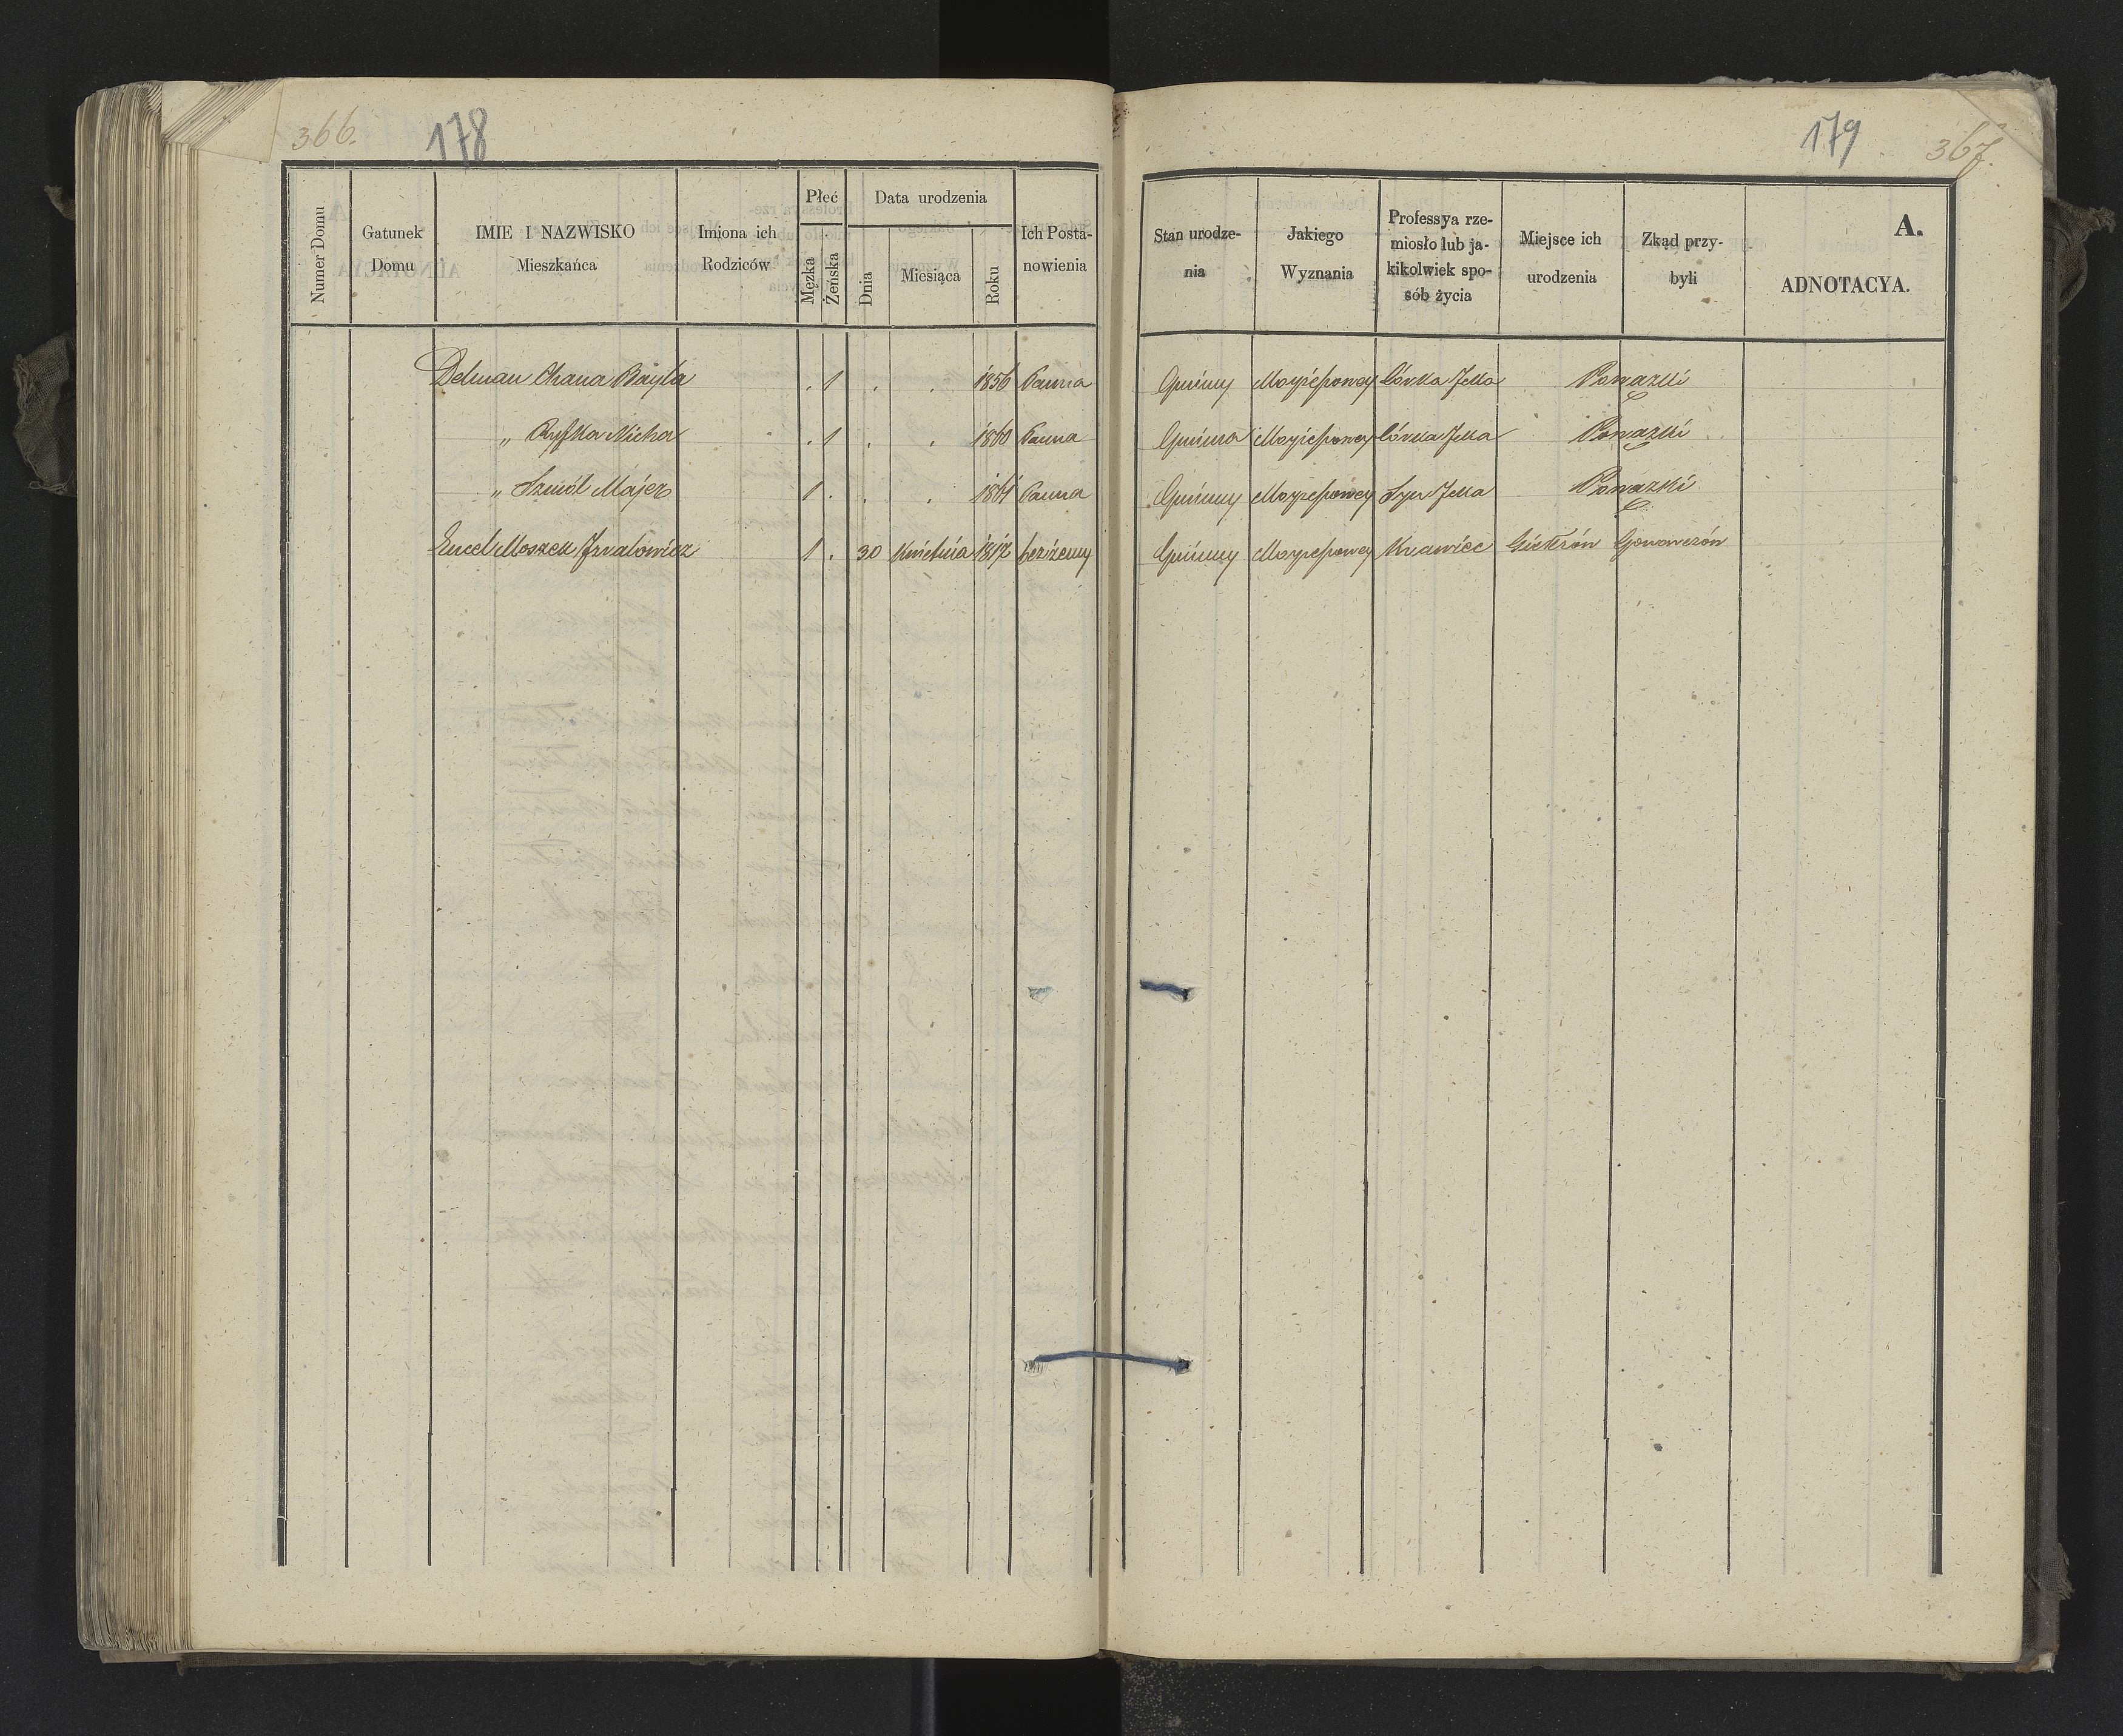 366. 178
Numer Domu
Gatunek Domu
IMIE I NAZWISKO Mieszkańca
Imiona ich Rodziców
Płeć
Męzka
Żeńska
Data urodzenia
Dnia
Miesiąca
Roku
Ich Posta-
nowienia
Delman Chana Bayla . 1 . . 1856 Panna
„ Ryfka Nicha . 1 . . 1860 Panna
„ Szmól Majer 1 . . . 1861 Panna
Moszek 1 . 30 Kwietnia
179 367.
A.
Stan urodze-
nia
Jakiego
Wyznania
Professya rze-
miosło lub ja-
kikolwiek spo-
sób życia
Miejsce ich
urodzenia
Zkąd przy-
byli
ADNOTACYA.
Gminny Mojżeszowey Córka Powazki
Gminna Mojżeszowey Córka Powazki
Gminny Mojżeszowey Syn Powazki
Gminny Mojżeszowey Krawiec